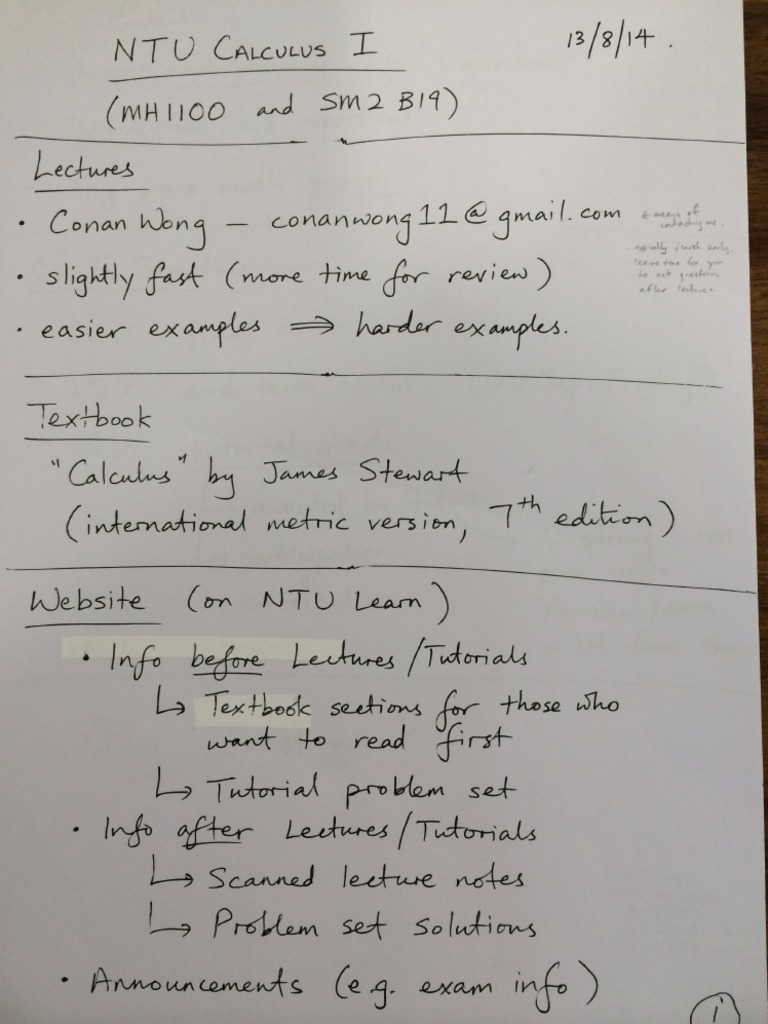 NTU CALCULUS I
13/8/14.
(MH1100 and SM2 B19)
Lectures
· Conan Wong – conanwong11@gmail.com
← means of
contacting me.
· slightly fast (more time for review)
typically finish early
leave time for you
to ask questions
after lecture.
· easier examples ⟹ harder examples.
Textbook
"Calculus" by James Stewart
(international metric version, 7th edition)
Website (on NTU Learn)
· Info before Lectures/Tutorials
↳ Textbook sections for those who
want to read first
↳ Tutorial problem set
· Info after Lectures/Tutorials
↳ Scanned lecture notes
↳ Problem set solutions
· Announcements (e.g. exam info)
1